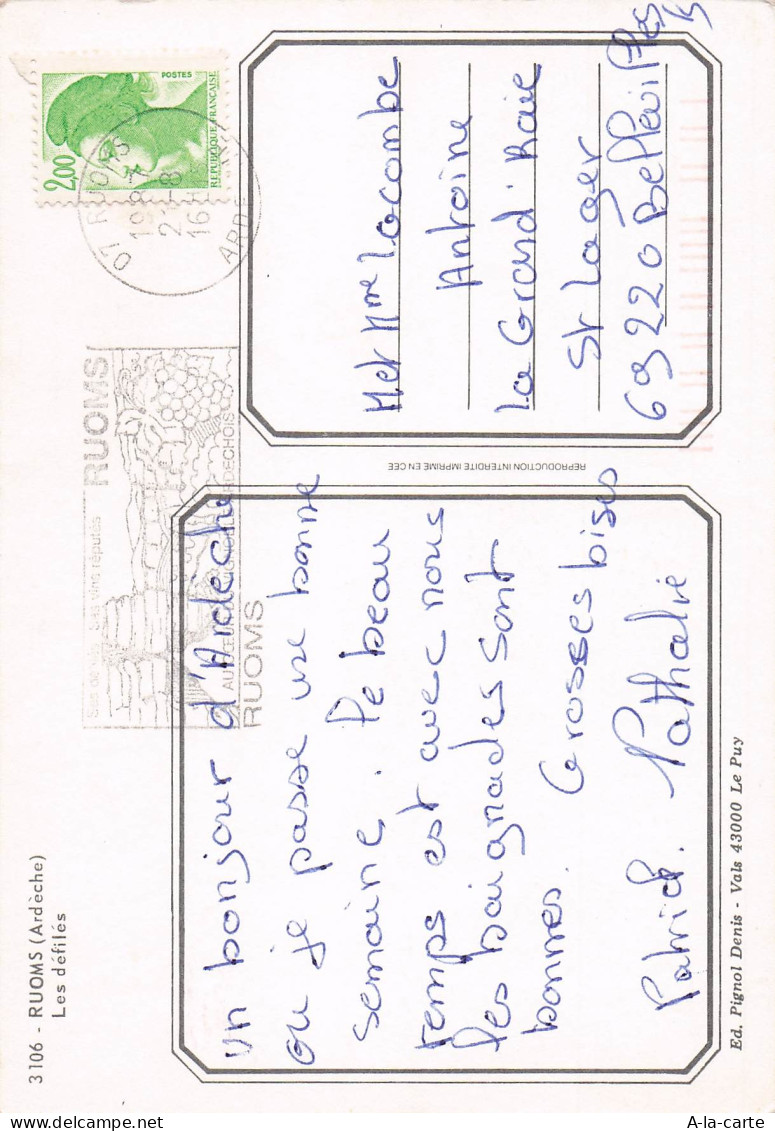 3106 - RUOMS (Ardèche)
Les défilés
Un bonjour d'Ardèche
ou je passe une bonne
semaine. Le beau
temps est avec nous
Les baignades sont
bonnes. Grosses bises
Patrick. Nathalie
Ed. Pignol Denis - Vals 43000 Le Puy
REPRODUCTION INTERDITE IMPRIME EN CEE
POSTES
REPUBLIQUE FRANÇAISE
2,00
07 RUOMS
21-8
ARDE
RUOMS
Ses vins réputés
RUOMS
M et Mme Lacombe
Antoine
La Grand' Raie
St Lager
69220 Belleville
A-la-carte